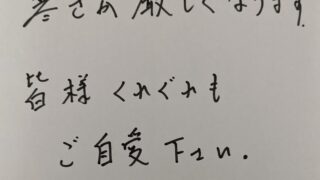 寒さが厳しくなります.
皆様くれぐれも
ご自愛下さい.